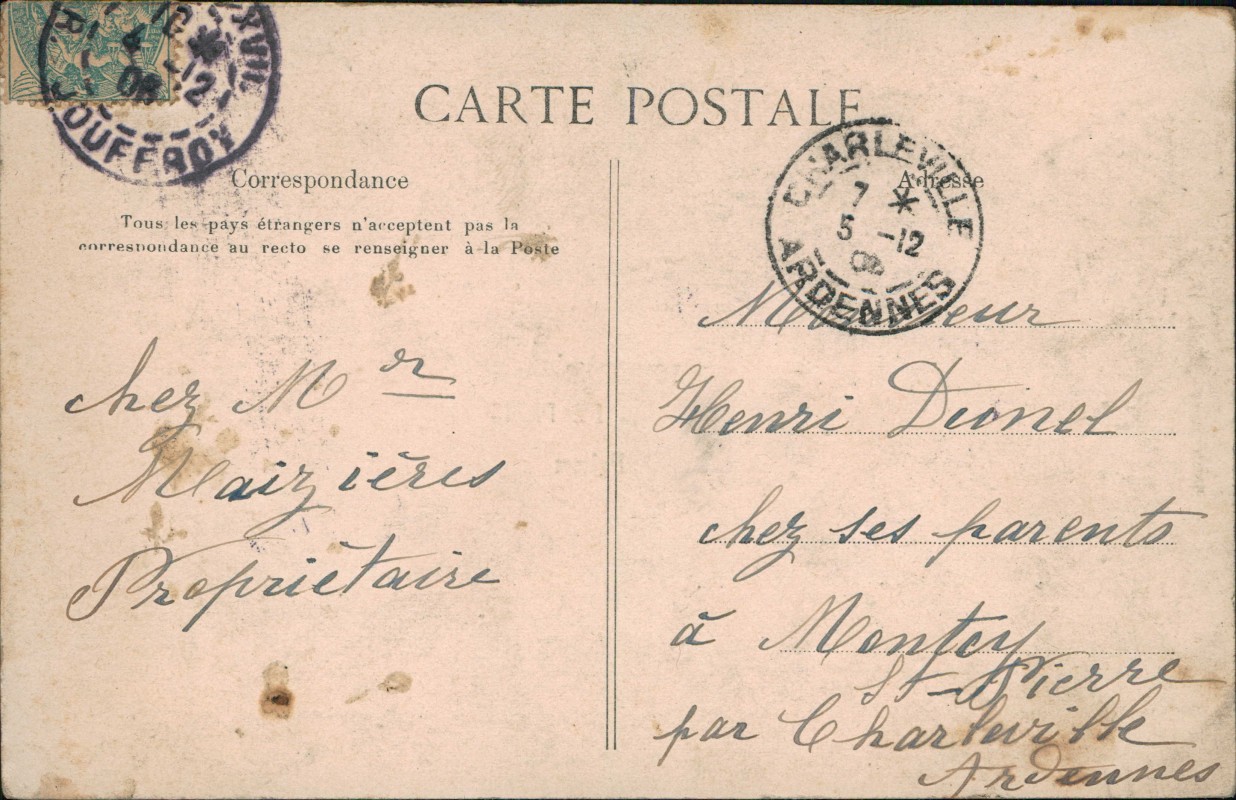 CARTE POSTALE
Correspondance
Tous les pays étrangers n'acceptent pas la
correspondance au recto se renseigner à la Poste
chez Mr
Maizières
Propriétaire
Adresse
Monsieur
Henri Dunel
chez ses parents
à Montcy
St-Pierre
par Charleville
Ardennes
XVII
4
12
JOUFFROY
CHARLEVILLE
7 *
5 -12
ARDENNES